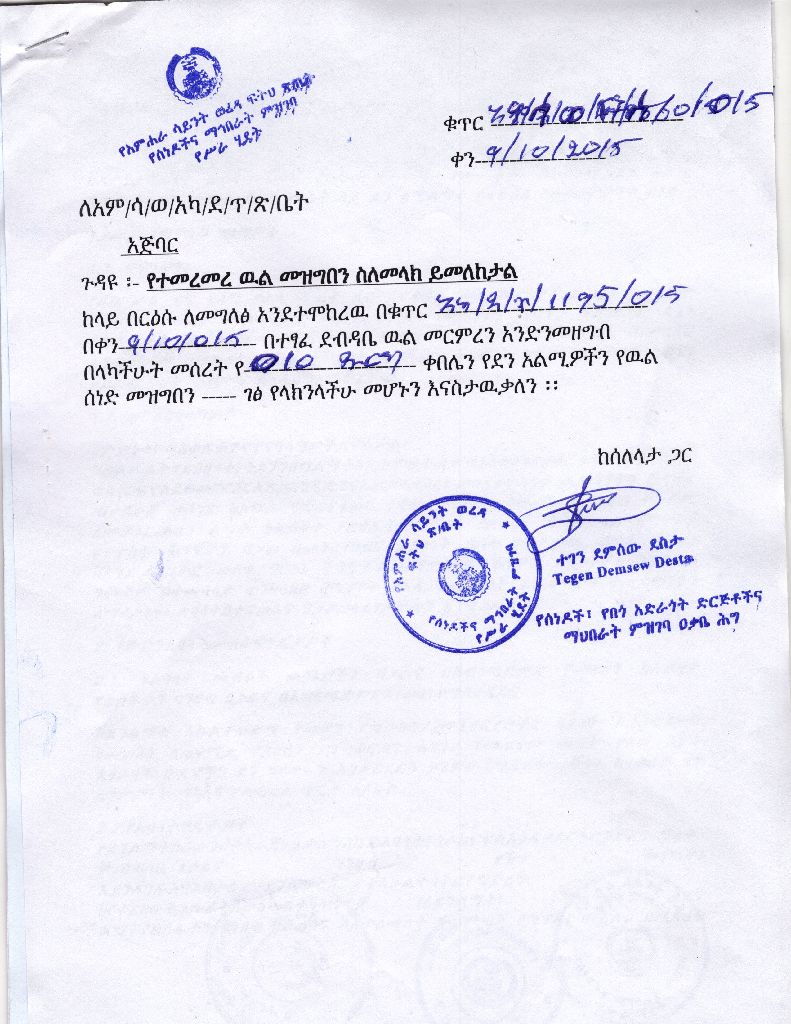 የአምሐራ ሳይንት ወረዳ ፍትህ ጽ/ቤት
የሰነዶችና ማኅበራት ምዝገባ
የሥራ ሂደት
ቁጥር
ቀን 9/10/2015
ለአም/ሳ/ወ/አካ/ደ/ጥ/ጽ/ቤት
አጅባር
ጉዳዩ ፡- የተመረመረ ዉል መዝግበን ስለመላክ ይመለከታል
ከላይ በርዕሱ ለመግለፅ እንደተሞከረዉ በቁጥር 1195/015
በቀን 9/10/015 በተፃፈ ደብዳቤ ዉል መርምረን እንድንመዘግብ
በላካችሁት መሰረት የ 010 ቀበሌን የደን አልሚዎችን የዉል
ሰነድ መዝግበን ----- ገፅ የላክንላችሁ መሆኑን እናስታዉቃለን ፡፡
ከሰለላታ ጋር
የአምሐራ ሳይንት ወረዳ
ፍትህ ጽ/ቤት
የሰነዶችና ማኅበራት ምዝገባ
የሥራ ሂደት
ተገን ደምሰው ደስታ
Tegen Demsew Desta
የሰነዶች፣ የበጎ አድራጎት ድርጅቶችና
ማህበራት ምዝገባ ዐቃቤ ሕግ